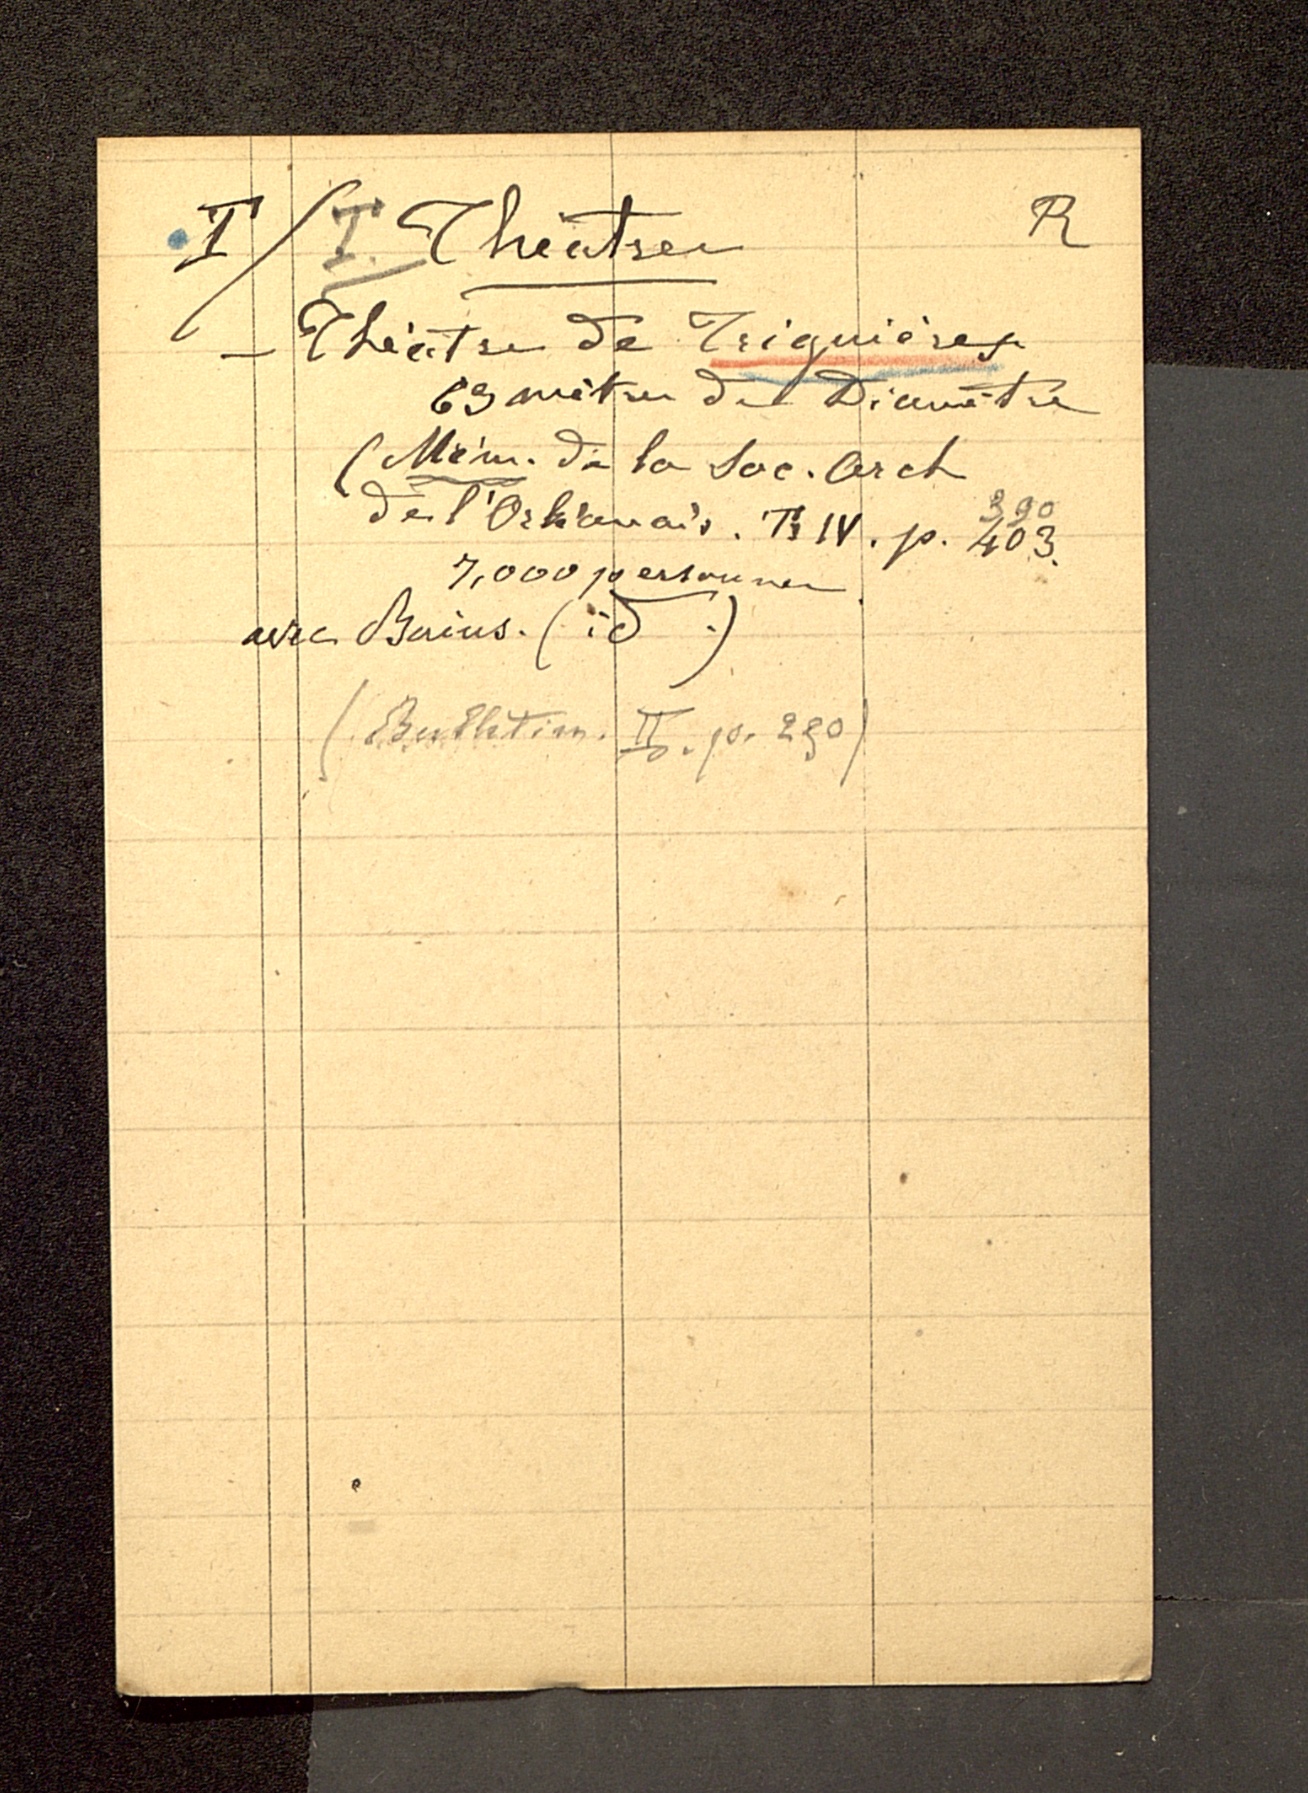 I / I. Théatres R
– Théatre de Triguières
69 mètres de Diamètre
(Mém. de la Soc. Arch
de l'Orléanais. T. IV. p. 403.
390
7,000 personnes
avec Bains. (id .)
(Bulletin. II. p. 290)